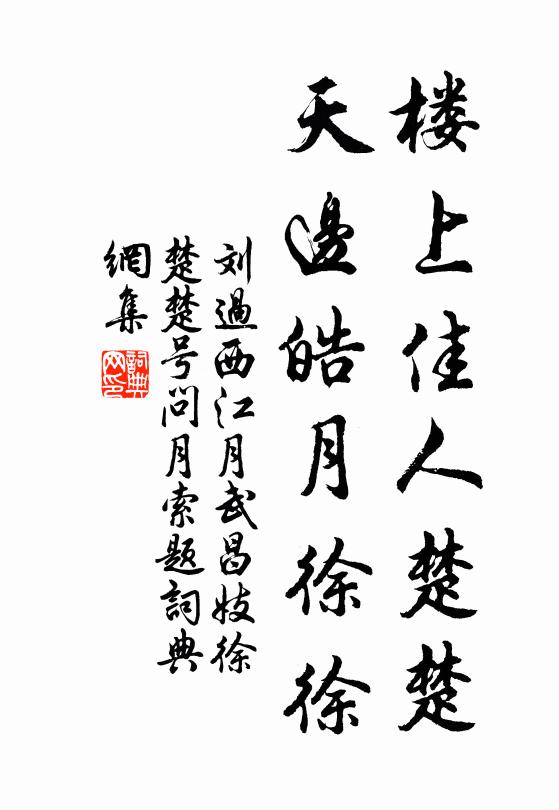 楼上佳人楚楚
天邊皓月徐徐
刘過西江月武昌妓徐
楚楚号问月索题詞典
網集
詞典网印